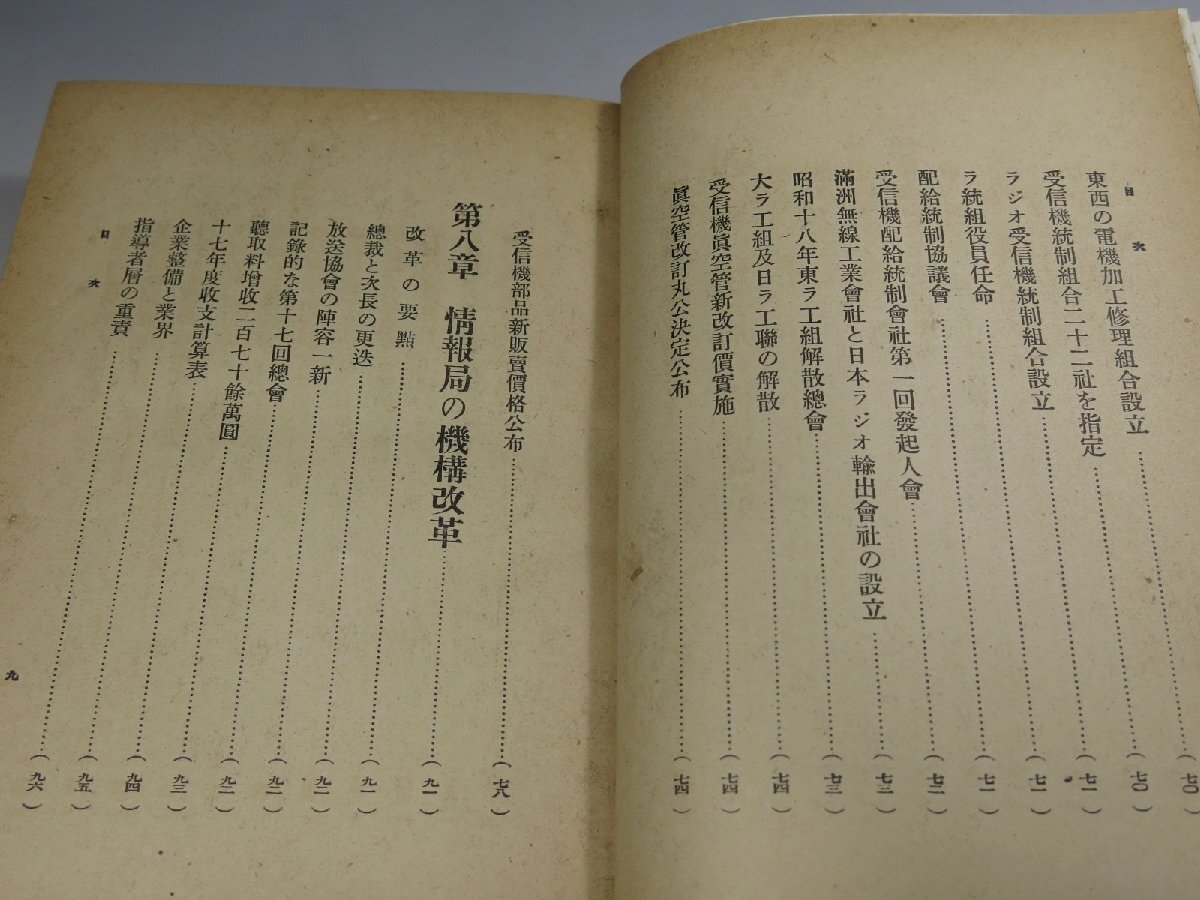 目次
東西の電機加工修理組合設立……(七〇)
受信機統制組合二十二社を指定……(七〇)
ラジオ受信機統制組合設立……(七一)
ラ統組役員任命……(七一)
配給統制協議會……(七一)
受信機配給統制會社第一回發起人會……(七二)
滿洲無線工業會社と日本ラジオ輸出會社の設立……(七三)
昭和十八年東ラ工組解散總會……(七三)
大ラ工組及日ラ工聯の解散……(七四)
受信機眞空管新改訂價實施……(七四)
眞空管改訂丸公決定公布……(七四)
受信機部品新販賣價格公布……(七八)
第八章 情報局の機構改革……(九一)
改革の要點……(九一)
總裁と次長の更迭……(九一)
放送協會の陣容一新……(九二)
記錄的な第十七回總會……(九二)
聽取料增收二百七十餘萬圓……(九三)
十七年度收支計算表……(九四)
企業整備と業界……(九五)
指導者層の重責……(九六)
目次
九